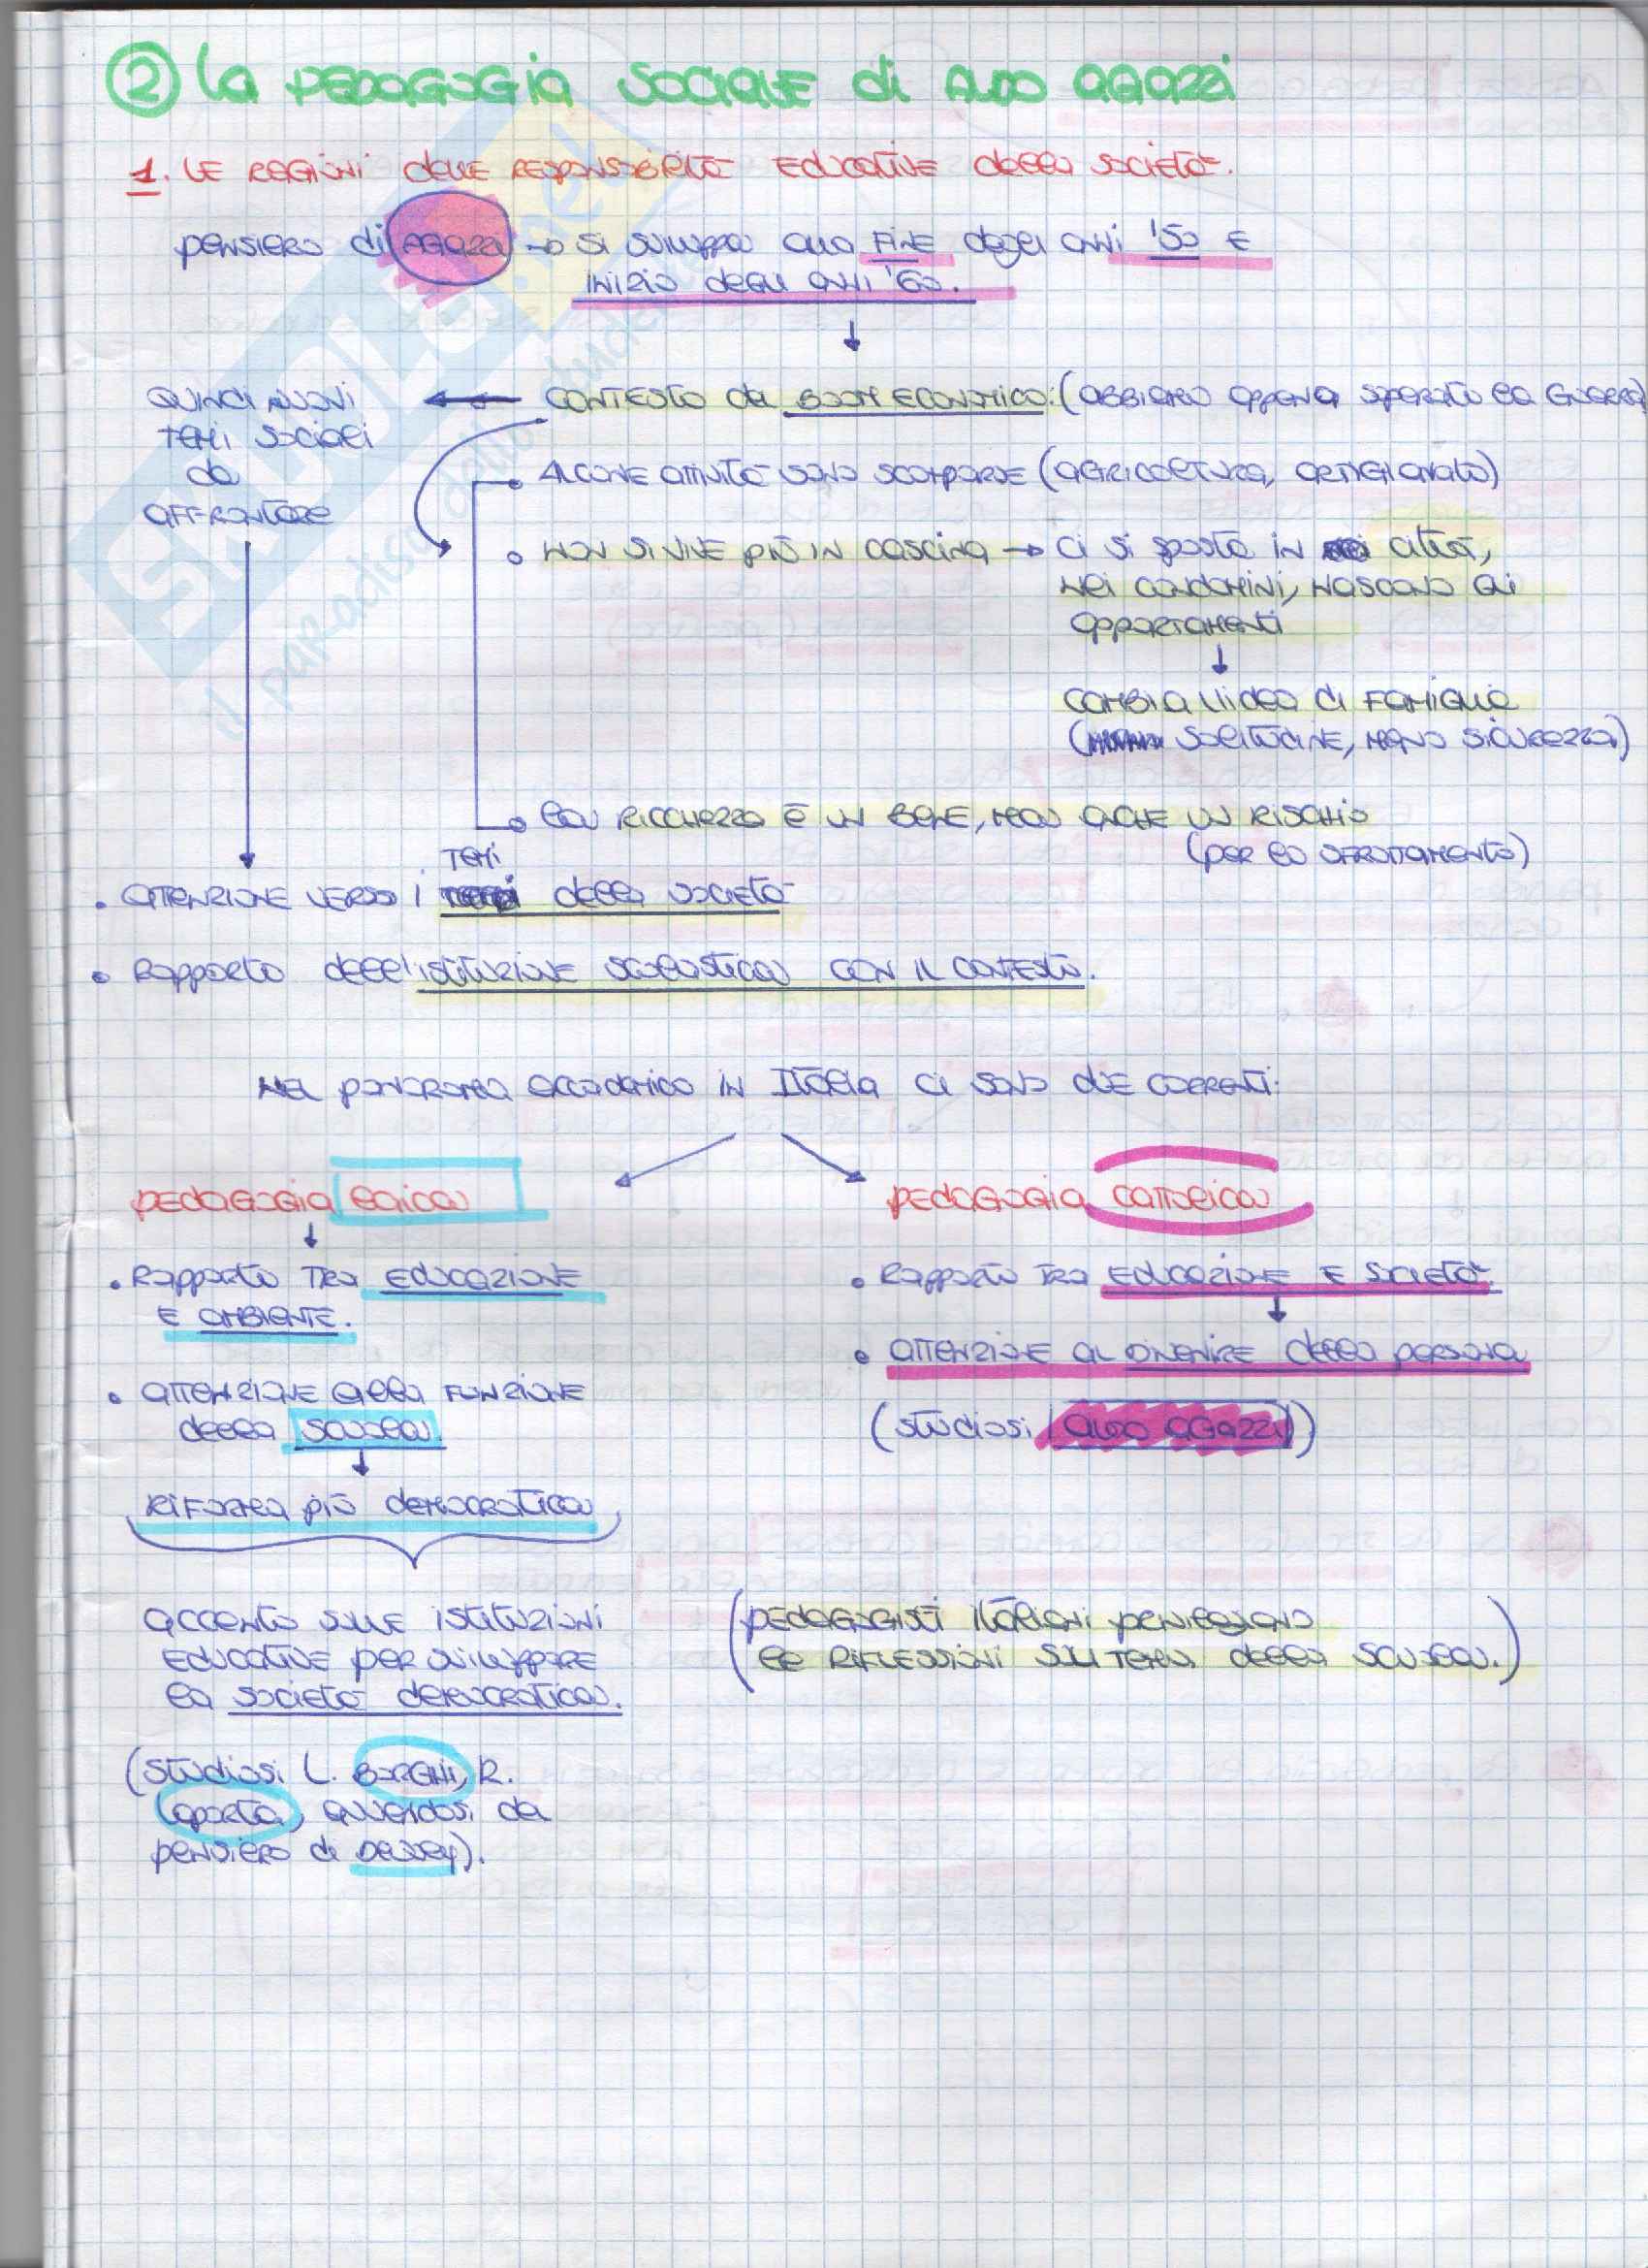 ② La PEDAGOGIA SOCIALE di ALDO AGAZZI
1. LE RAGIONI delle RESPONSABILITÀ EDUCATIVE della SOCIETÀ.
PENSIERO di AGAZZI → SI SVILUPPA alla FINE degli anni '50 E
INIZIO degli anni '60.
QUINDI NUOVI
TEMI SOCIALI
da
AFFRONTARE
CONTESTO del BOOM ECONOMICO: (ABBIAMO appena superato la GUERRA)
ALCUNE attività sono SCOMPARSE (AGRICOLTURA, ARTIGIANATO)
NON SI VIVE PIÙ IN CASCINA → Ci si sposta in città,
nei condomini, nascono gli
appartamenti
CAMBIA l'idea di FAMIGLIA
( SOLITUDINE, MENO SICUREZZA)
la RICCHEZZA È UN BENE, ma anche UN RISCHIO
(PER lo SFRUTTAMENTO)
TEMI
• ATTENZIONE VERSO I della società
• Rapporto dell'istituzione scolastica CON IL CONTESTO.
Nel panorama accademico in Italia ci sono due correnti:
PEDAGOGIA laica
PEDAGOGIA cattolica
• Rapporto TRA EDUCAZIONE
E AMBIENTE.
• ATTENZIONE alla FUNZIONE
della scuola
RIFORMA più democratica
• Rapporto tra EDUCAZIONE E SOCIETÀ
• ATTENZIONE AL DIVENIRE della persona
(studiosi ALDO AGAZZI)
accento sulle istituzioni
EDUCATIVE per sviluppare
la società democratica.
(PEDAGOGISTI italiani privilegiano
le RIFLESSIONI SUL TEMA della scuola.)
(studiosi L. BORGHI, R.
Laporta, avvicidosi al
pensiero di Dewey).
SKUOLA.net
il paradiso dello studente